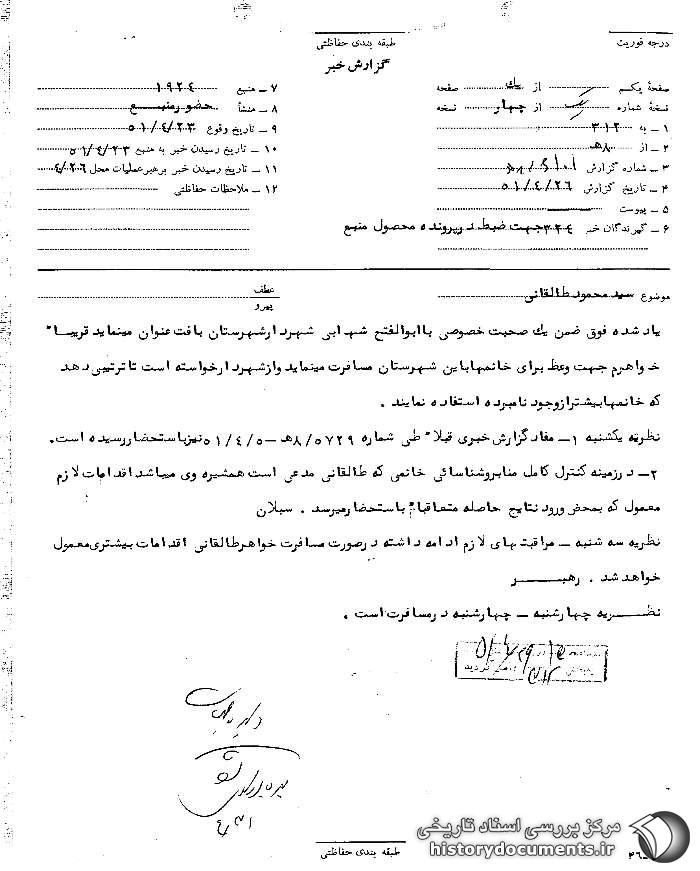 درجه فوریت
طبقه بندی حفاظتی
گزارش خبر
صفحهٔ یکم از یک صفحه
نسخهٔ شماره از چهار نسخه
۱ ـ به ۳۱۲
۲ ـ از ۸هـ
۳ ـ شماره گزارش
۴ ـ تاریخ گزارش ۵۱/۴/۲۶
۵ ـ پیوست
۶ ـ گیرندگان خبر ۳۲۴ جهت ضبط در پرونده محصول منبع
۷ ـ منبع ۱۹۲۴
۸ ـ منشأ حضور منبع
۹ ـ تاریخ وقوع ۵۱/۴/۲۳
۱۰ ـ تاریخ رسیدن خبر به منبع ۵۱/۴/۲۳
۱۱ ـ تاریخ رسیدن خبر برهبر عملیات محل ۴/۲۶
۱۲ ـ ملاحظات حفاظتی
موضوع سید محمود طالقانی
عطف
پیرو
یاد شده فوق ضمن یك صحبت خصوصی با ابوالفتح شهابی شهردار شهرستان بافت عنوان مینماید قریباً
خواهرم جهت وعظ برای خانمها باین شهرستان مسافرت مینماید و از شهردار خواسته است تا ترتیبی دهد
که خانمها بیشتر از وجود نامبرده استفاده نمایند .
نظریه یکشنبه ۱ـ مفاد گزارش خبری قبلاً طی شماره ۸/۵۷۲۹هـ ـ ۵۱/۴/۵ نیز باستحضار رسیده است.
۲ـ در زمینه کنترل کامل منابر و شناسائی خانمی که طالقانی مدعی است همشیره وی میباشد اقدامات لازم
معمول که بمحض ورود نتایج حاصله متعاقباً باستحضار میرسد . سبلان
نظریه سه شنبه ـ مراقبتهای لازم ادامه داشته در صورت مسافرت خواهر طالقانی اقدامات بیشتری معمول
خواهد شد . رهبر
نظریه چهارشنبه ـ چهارشنبه در مسافرت است .
طبقه بندی حفاظتی
مرکز بررسی اسناد تاریخی
historydocuments.ir